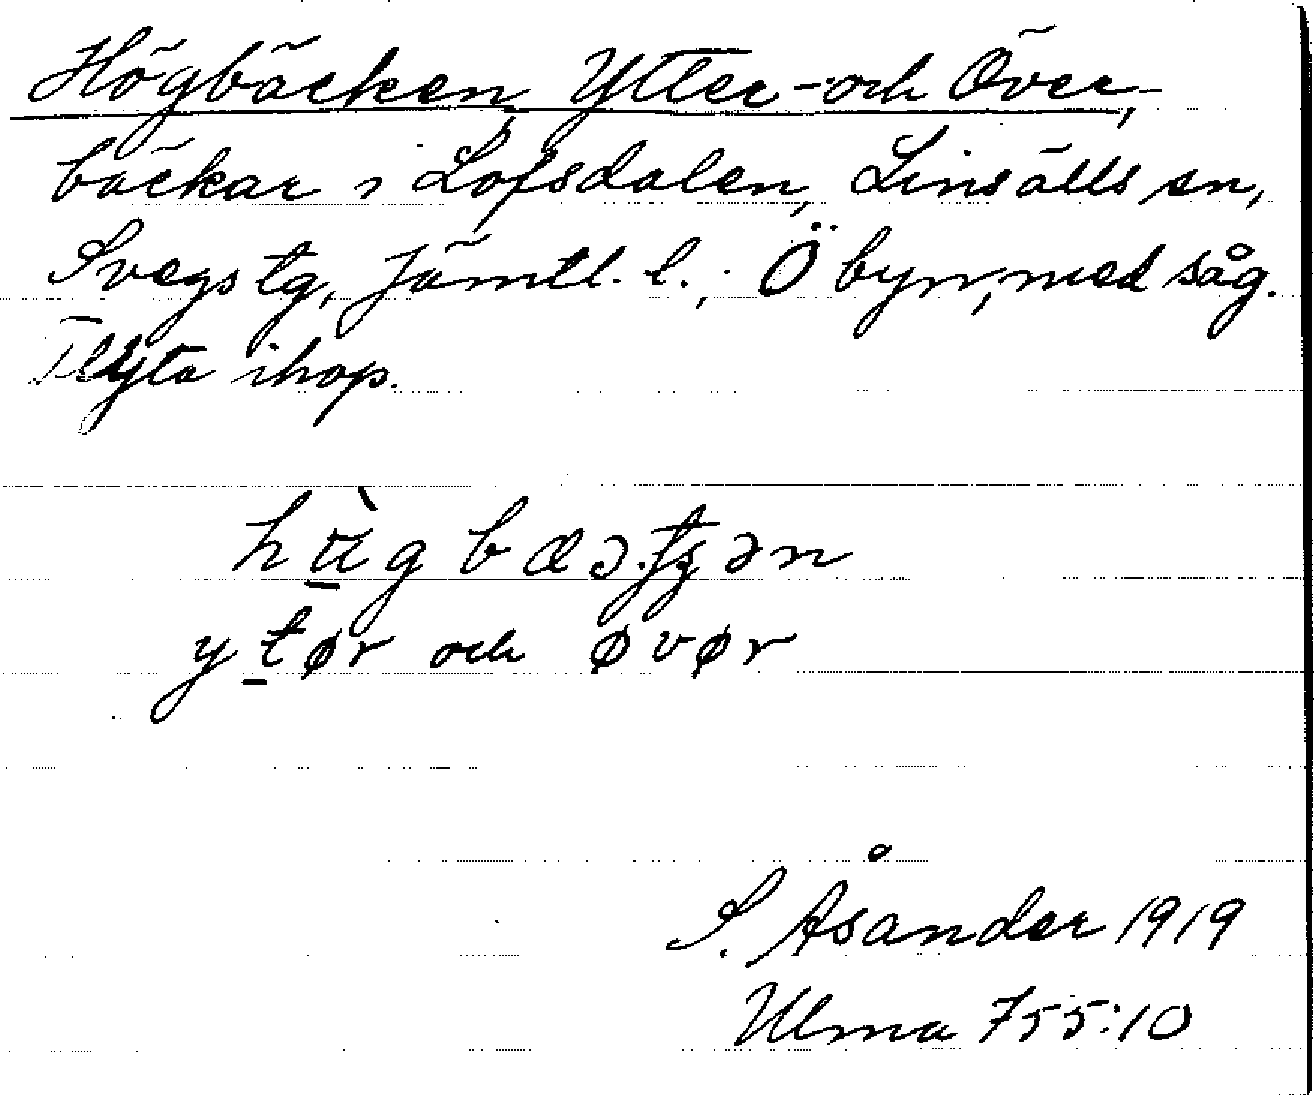 Högbäcken, Ytter- och Över-,
bäckar i Lofsdalen, Linsälls sn,
Svegs tg, Jämtl. l.; Ö byn, med såg.
Flyta ihop.
ytør och øvør
S. Åsander 1919
Ulma 755:10